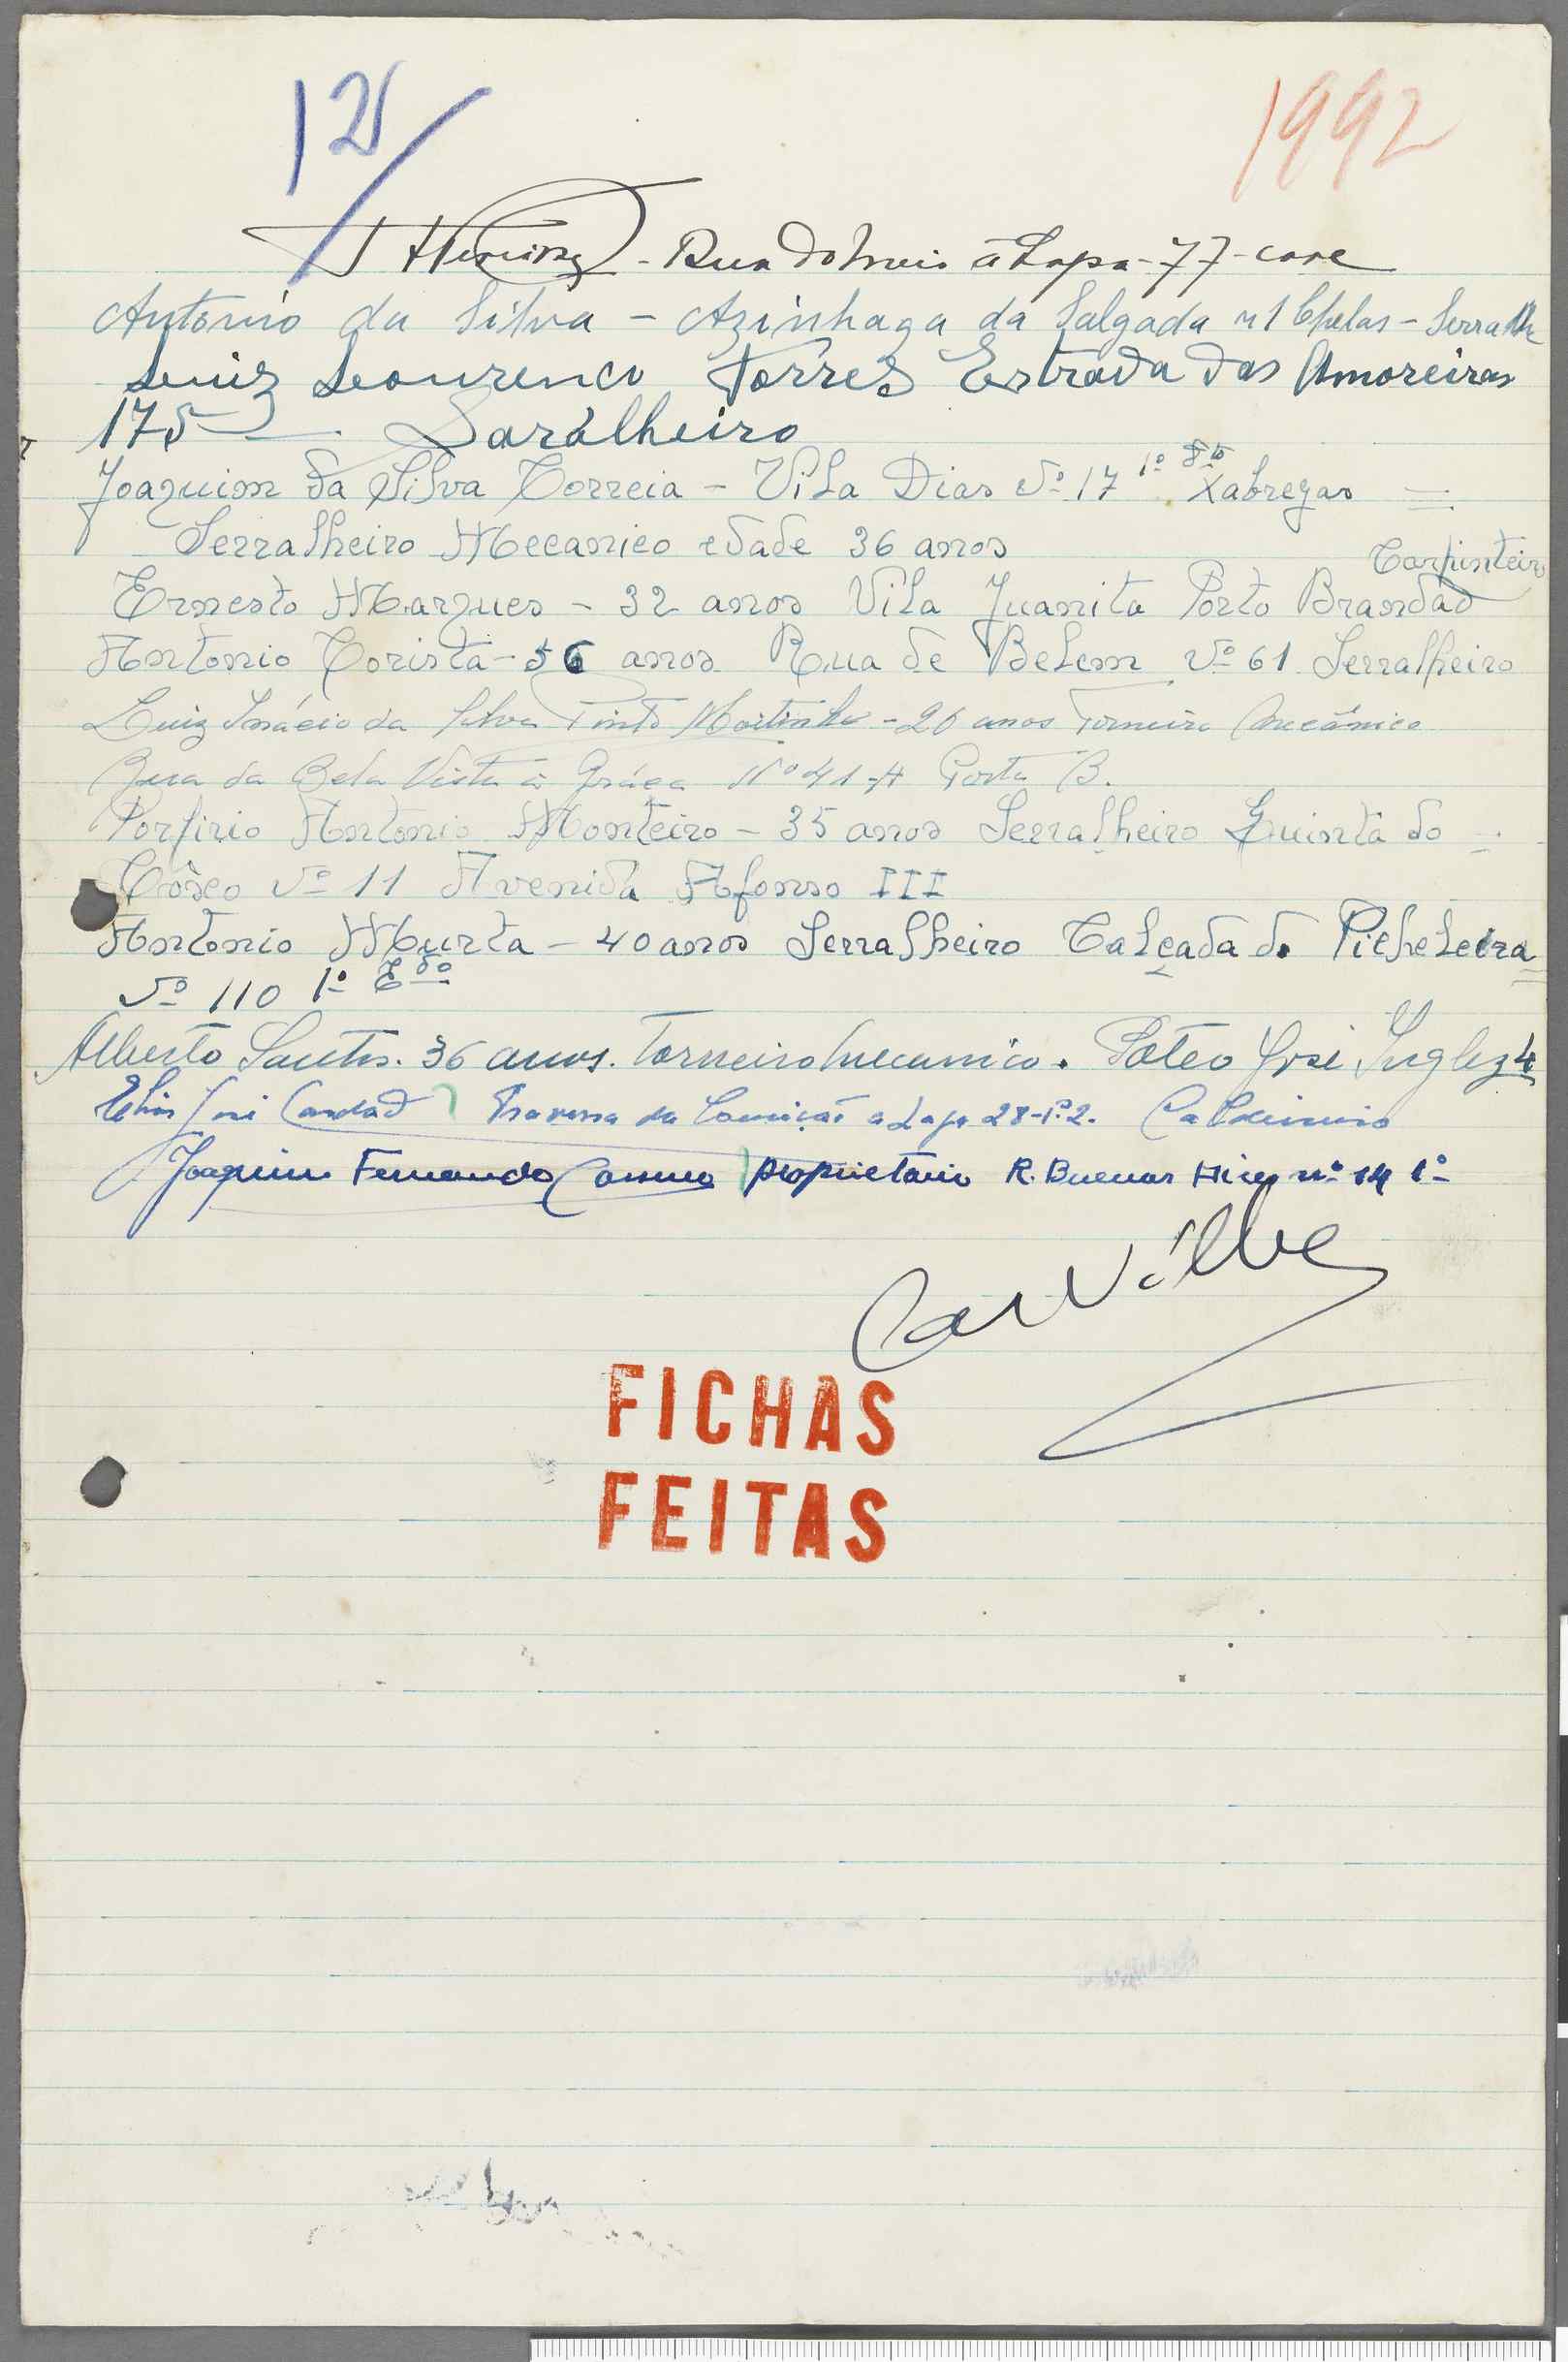 12
1992
- Rua do Meio à Lapa - 77 - cave
Antonio da Silva - Azinhaga da Salgada nº 1 Chelas - Serralh
Luiz Lourenco Torres Estrada das Amoreiras
175 - Saralheiro
Joaquim da Silva Correia - Vila Dias Nº 17 1º Dto Xabregas =
Serralheiro Mecanico edade 36 anos
Carpinteiro
Ernesto Marques - 32 anos Vila Juanita Porto Brandão
Antonio Corista - 56 anos Rua de Belem Nº 61 Serralheiro
Luiz Inácio da Silva Pinto Moitinho - 26 anos Torneiro Mecânico
Rua da Bela Vista à Graça Nº 41-A Porta B.
Porfirio Antonio Monteiro - 35 anos Serralheiro Quinta do =
Côxo Nº 11 Avenida Afonso III
Antonio Murta - 40 anos Serralheiro Calçada do Picheleira
Nº 110 1º Edo
Alberto Santos. 36 anos. Torneiro Mecanico. Páteo José Inglez 4
José Travessa da à Lapa 28-1º 2.
Joaquim Fernando proprietário R. Buenos Aires nº 14 1º
FICHAS
FEITAS